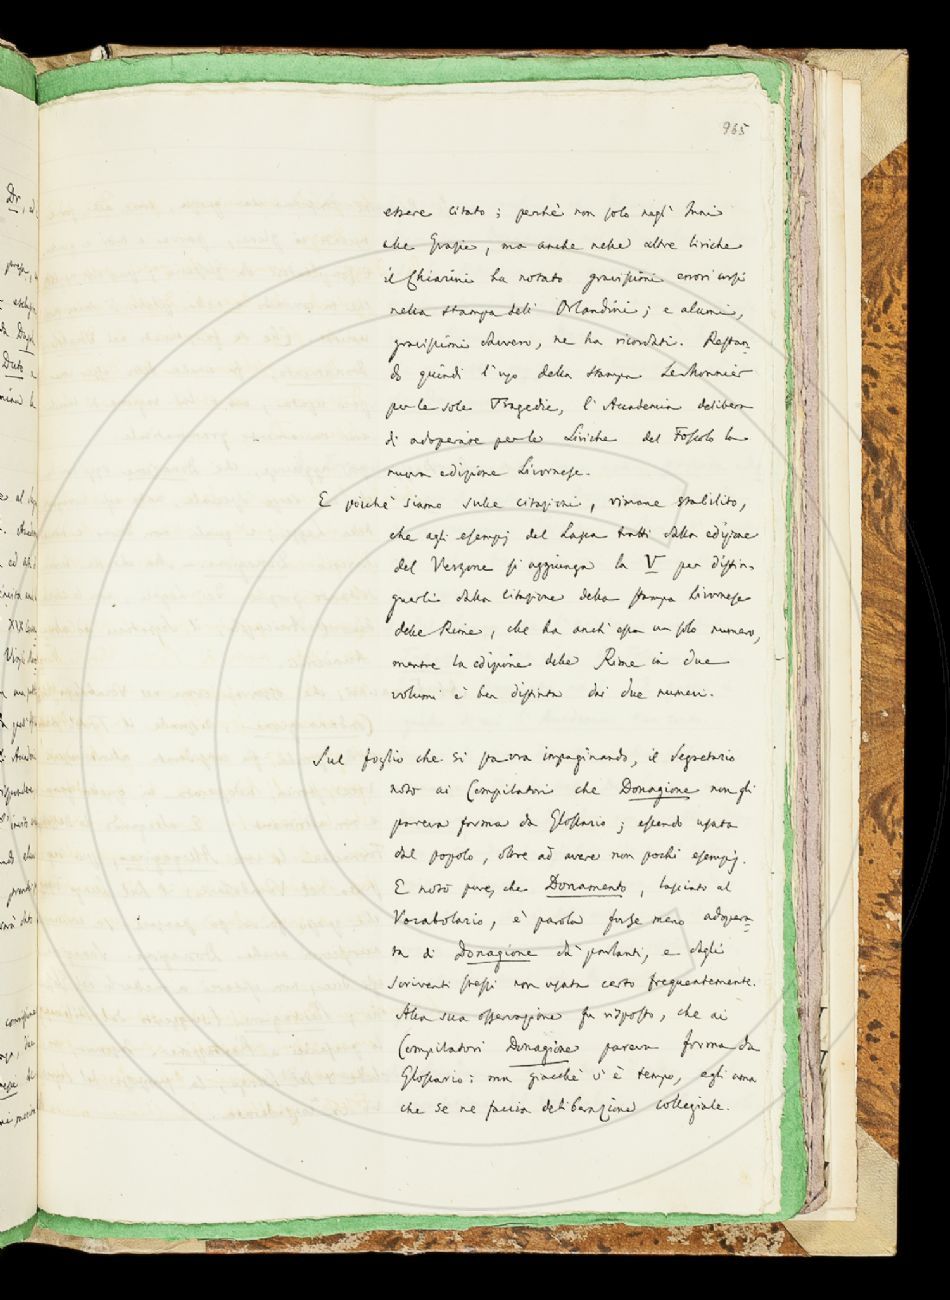 965
essere citato; perchè non solo negl'Inni
alle Grazie, ma anche nelle altre liriche
il Chiarini ha notato gravissimi errori corsi
nella stampa dell'Orlandini; e alcuni,
gravissimi davvero, ne ha ricordati. Restan-
do quindi l'uso della stampa Le Monnier
per le sole Tragedie, l'Accademia delibera
di adoperare per le Liriche del Foscolo la
nuova edizione Livornese.
E poichè siamo sulle citazioni, rimane stabilito,
che agli esempj del Lasca tratti dalla edizione
del Verzone si aggiunga la V per distin-
guerli dalla citazione della stampa Livornese
delle Rime, che ha anch'essa un solo numero,
mentre la edizione delle Rime in due
volumi è ben distinta dai due numeri.
Sul foglio che si stava impaginando, il Segretario
notò ai Compilatori che Donagione non gli
pareva forma da Glossario; essendo usata
dal popolo, oltre ad avere non pochi esempj.
E notò pure, che Donamento, lasciato al
Vocabolario, è parola forse meno adopera-
ta di Donagione da' parlanti, e dagli
scriventi stessi non usata certo frequentemente.
Alla sua osservazione fu risposto, che ai
Compilatori Donagione pareva forma da
Glossario: ma giacchè v'è tempo, egli ama
che se ne faccia deliberazione collegiale.